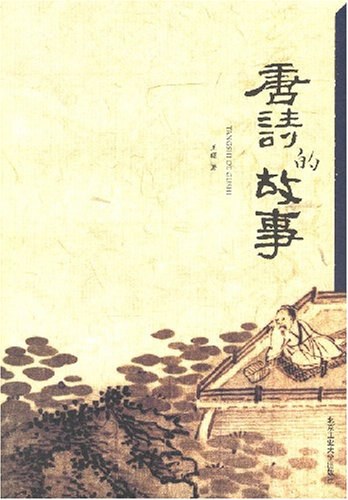 唐詩的故事
TANGSHI DE GUSHI
王曙 著
北京工业大学出版社